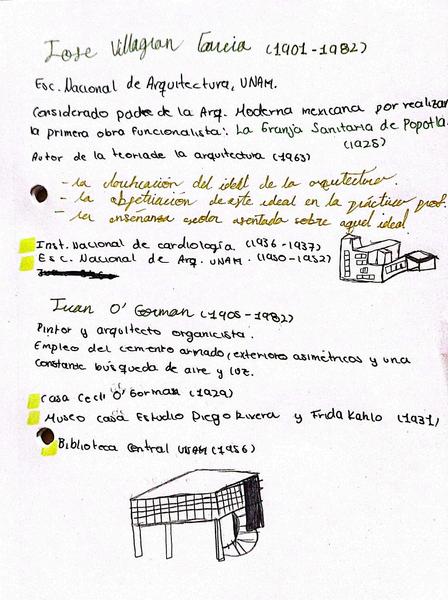 Jose Villagran Garcia (1901-1982)
Esc. Nacional de Arquitectura, UNAM.
Considerado padre de la Arq. Moderna mexicana por realizar
la primera obra funcionalista: La Granja Sanitaria de Popotla.
(1925)
Autor de la teoria de la arquitectura (1963)
- la clarificación del ideal de la arquitectura.
- la objetivación de este ideal en la práctica prof.
- la enseñanza escolar asentada sobre aquel ideal
Inst. Nacional de cardiología (1936-1937)
Esc. Nacional de Arq. UNAM. (1950-1952)
Juan O' Gorman (1905-1982)
Pintor y arquitecto organicista.
Empleo del cemento armado, exteriores asimétricos y una
constante búsqueda de aire y luz.
Casa Cecil O' Gorman (1929)
Museo casa Estudio Diego Rivera y Frida Kahlo (1931)
Biblioteca Central UNAM (1956)